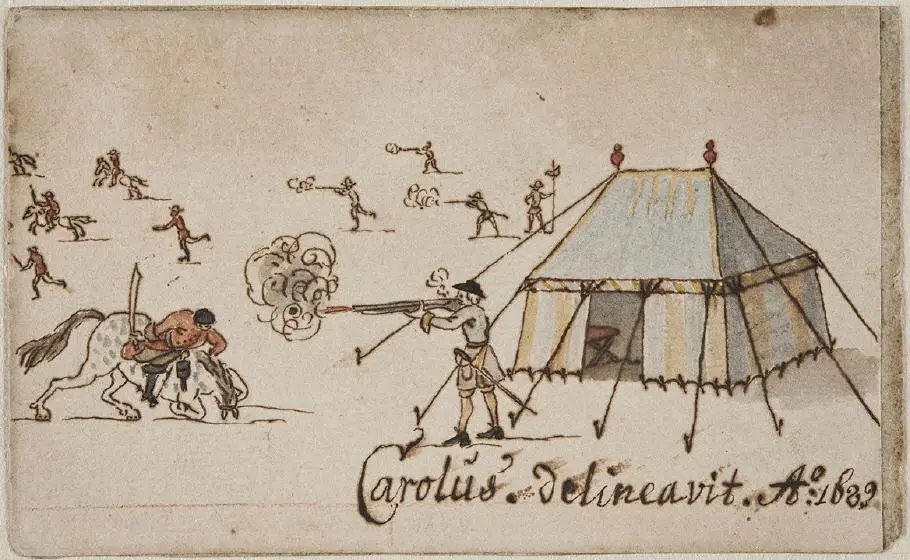 Carolŭs. delineavit. Aº: 1689